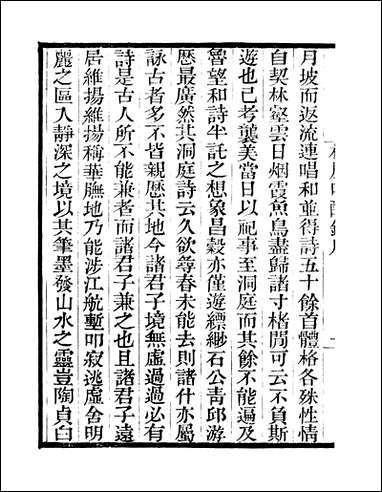 月坡而返流連唱和並得詩五十餘首體格各殊性情
自契林壑雲日烟霞魚鳥盡歸諸寸楮閒可云不負斯
遊也已考龔美當日以祀事至洞庭而其餘不能遍及
魯望和詩半託之想象昌穀亦僅遊縹緲石公青邱游
歷最廣然其洞庭詩云久欲尋春未能去則諸什亦屬
詠古者多不皆親歷其地今諸君子境無虛過過必有
詩是古人所不能兼者而諸君子兼之也且諸君子遠
居維揚維揚稱華膴地乃能涉江航塹叩寂逃虛舍明
麗之區入靜深之境以其筆墨發山水之靈豈陶貞白